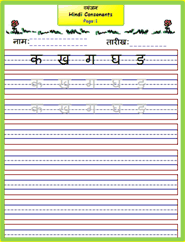 व्यंजन
Hindi Consonants
Page:1
नाम: तारीख:
क ख ग घ ङ
क ख ग घ ङ
क ख ग घ ङ